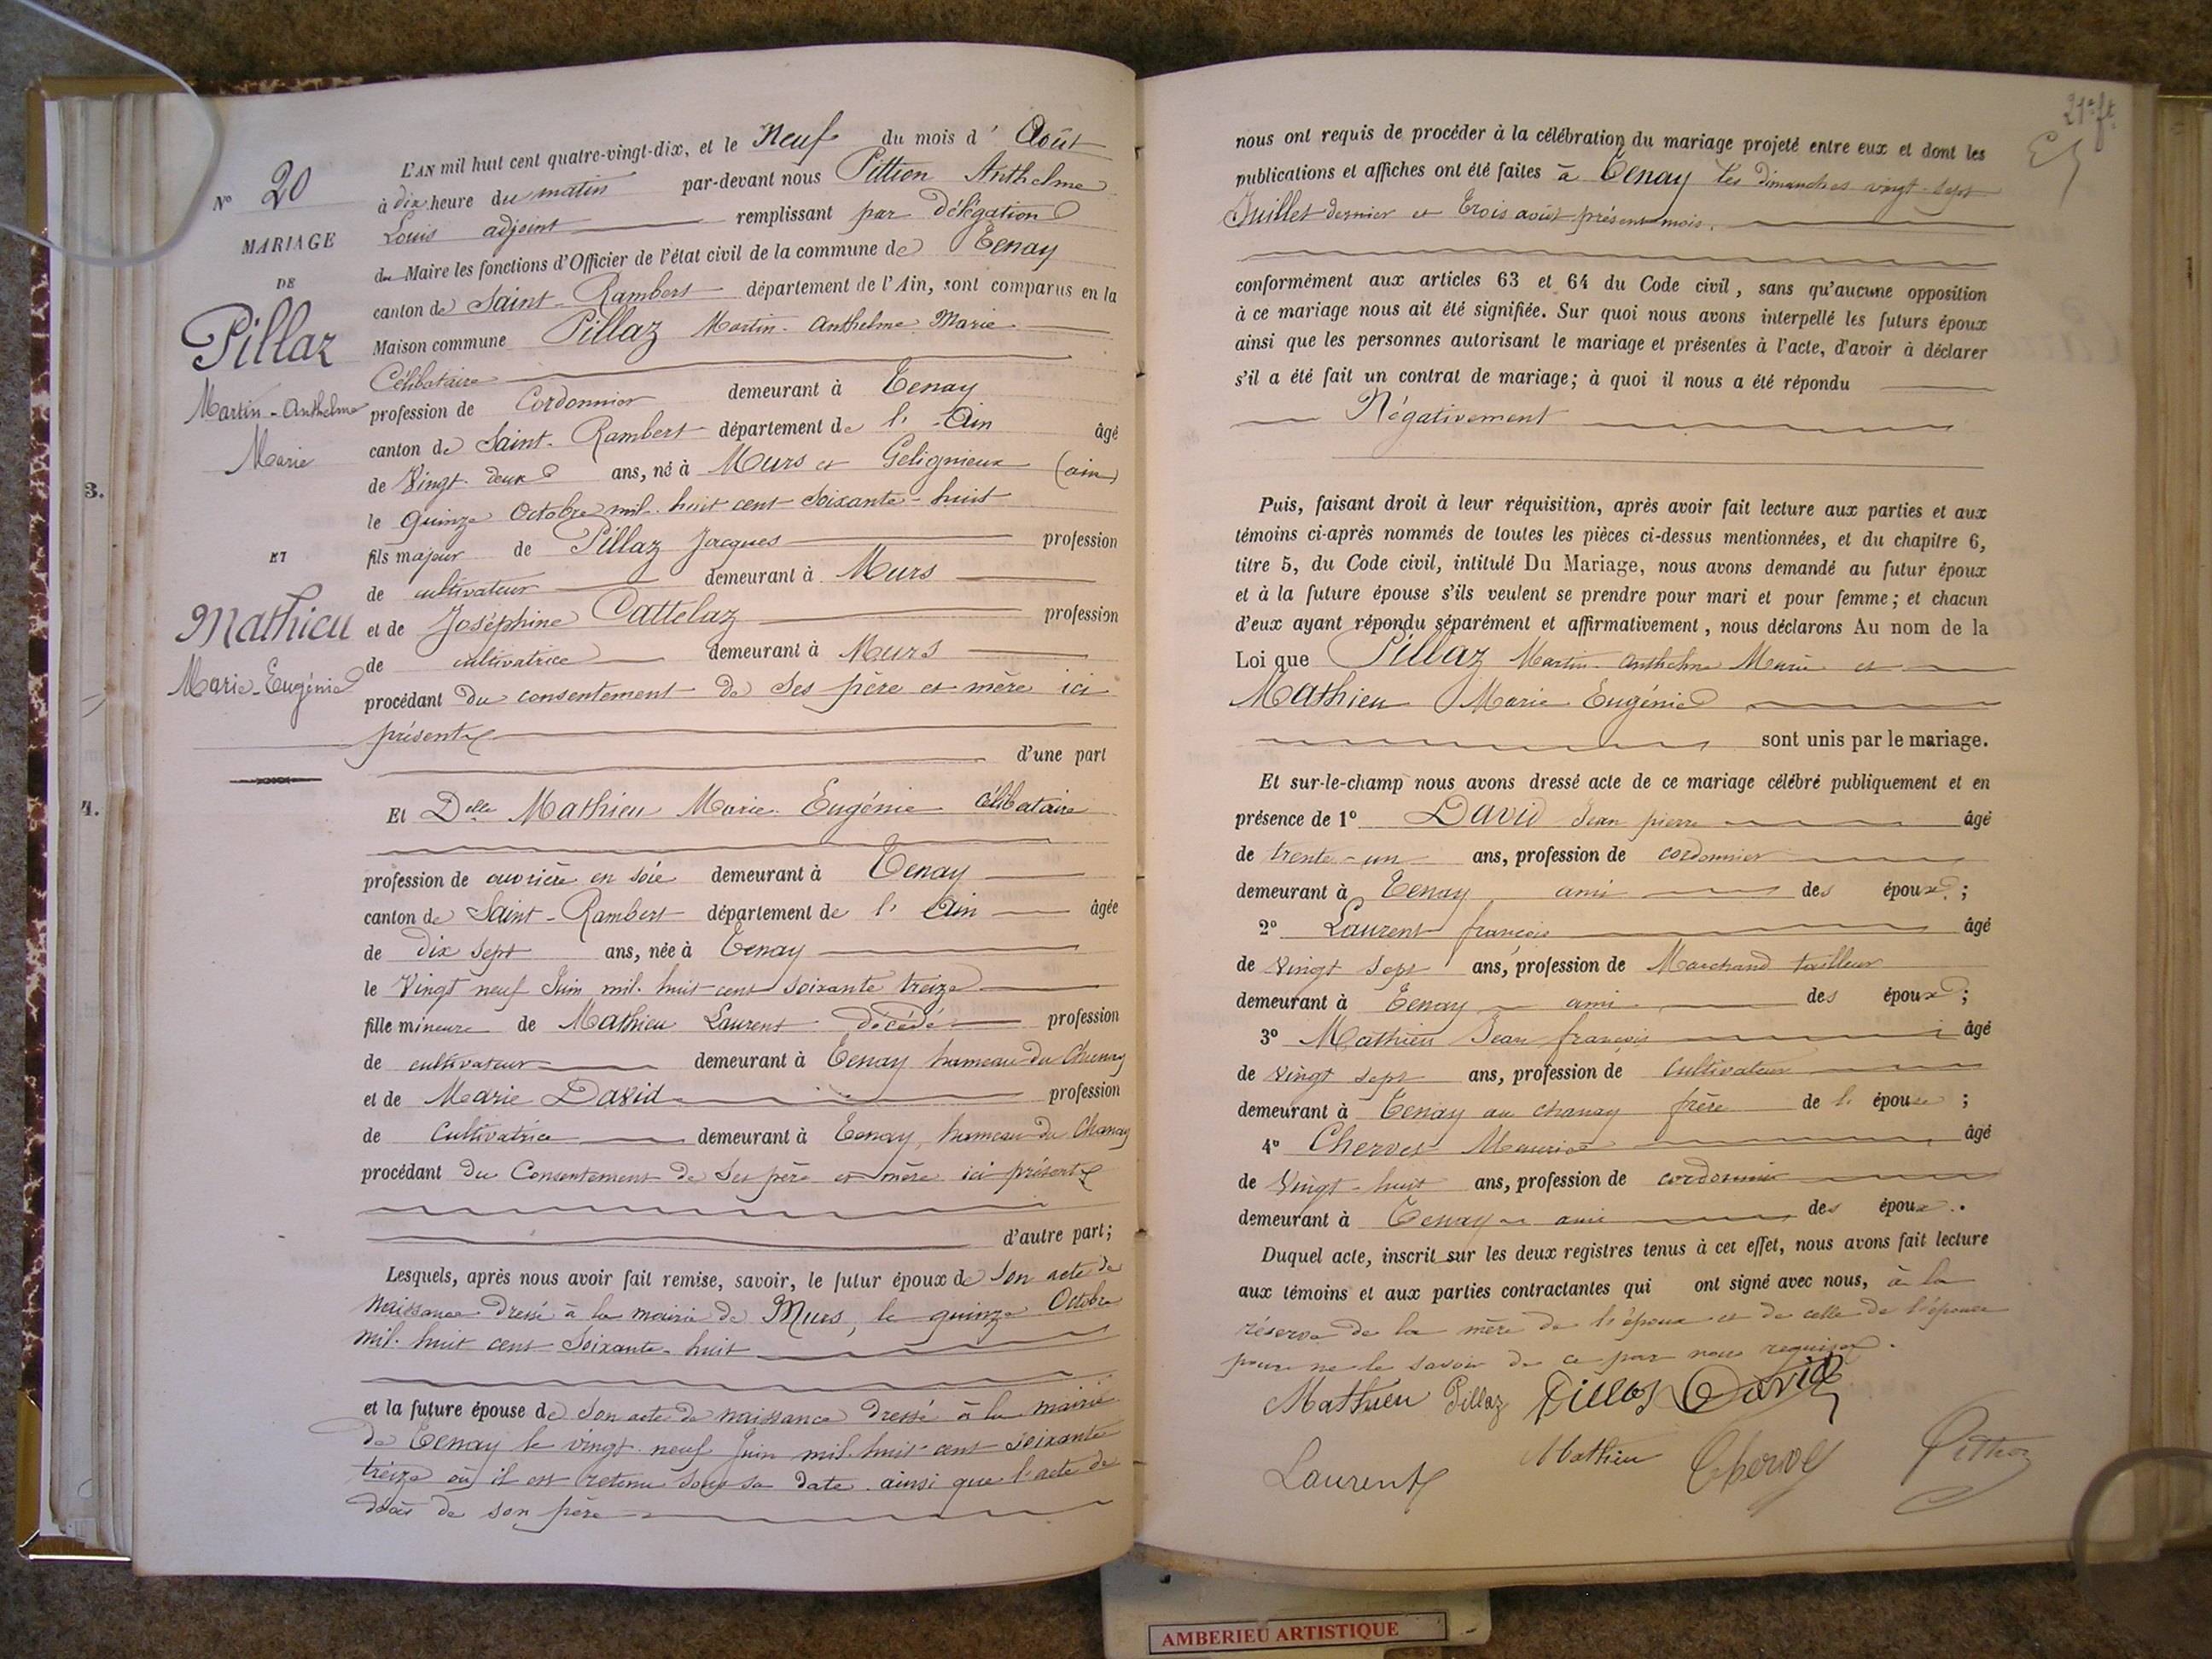 N° 20
MARIAGE
DE
Pillaz
Martin-Anthelme
Marie
ET
Mathieu
Marie-Eugénie
3.
4.
L'AN mil huit cent quatre-vingt-dix, et le Neuf du mois d' Août
à dix heure du matin par-devant nous Pittion Anthelme
Louis adjoint remplissant par délégation
du Maire les fonctions d'Officier de l'état civil de la commune de Tenay
canton de Saint-Rambert département de l'Ain, sont comparus en la
Maison commune Pillaz Martin-Anthelme Marie
Célibataire
profession de Cordonnier demeurant à Tenay
canton de Saint-Rambert département de l'Ain âgé
de Vingt deux ans, né à Murs et Gelignieux (ain)
le quinze Octobre mil huit cent soixante-huit
fils majeur de Pillaz Jacques profession
de cultivateur demeurant à Murs
et de Joséphine Cattelaz profession
de cultivatrice demeurant à Murs
procédant du consentement de ses père et mère ici
présents
d'une part
Et Delle Mathieu Marie Eugénie célibataire
profession de ouvrière en soie demeurant à Tenay
canton de Saint-Rambert département de l'Ain âgée
de dix sept ans, née à Tenay
le Vingt neuf Juin mil huit cent soixante treize
fille mineure de Mathieu Laurent décédé profession
de cultivateur demeurant à Tenay hameau du Chanay
et de Marie David profession
de Cultivatrice demeurant à Tenay, hameau du Chanay
procédant du Consentement de ses père et mère ici présents
d'autre part;
Lesquels, après nous avoir fait remise, savoir, le futur époux de son acte de
Naissance dressé à la mairie de Murs, le quinze Octobre
mil huit cent soixante-huit
et la future épouse de son acte de naissance dressé à la mairie
de Tenay le vingt neuf Juin mil huit cent soixante
treize où il est retenu sous sa date ainsi que l'acte de
décès de son père
21e ft
nous ont requis de procéder à la célébration du mariage projeté entre eux et dont les
publications et affiches ont été faites à Tenay les dimanches vingt-sept
Juillet dernier et trois août présent mois.
conformément aux articles 63 et 64 du Code civil, sans qu'aucune opposition
à ce mariage nous ait été signifiée. Sur quoi nous avons interpellé les futurs époux
ainsi que les personnes autorisant le mariage et présentes à l'acte, d'avoir à déclarer
s'il a été fait un contrat de mariage; à quoi il nous a été répondu
Négativement
Puis, faisant droit à leur réquisition, après avoir fait lecture aux parties et aux
témoins ci-après nommés de toutes les pièces ci-dessus mentionnées, et du chapitre 6,
titre 5, du Code civil, intitulé Du Mariage, nous avons demandé au futur époux
et à la future épouse s'ils veulent se prendre pour mari et pour femme; et chacun
d'eux ayant répondu séparément et affirmativement, nous déclarons Au nom de la
Loi que Pillaz Martin-Anthelme Marie et
Mathieu Marie Eugénie
sont unis par le mariage.
Et sur-le-champ nous avons dressé acte de ce mariage célébré publiquement et en
présence de 1° David Jean pierre âgé
de trente-un ans, profession de cordonnier
demeurant à Tenay ami des époux;
2° Laurent françois âgé
de vingt sept ans, profession de Marchand tailleur
demeurant à Tenay ami des époux;
3° Mathieu Jean françois âgé
de vingt sept ans, profession de Cultivateur
demeurant à Tenay au chanay frère de l'épouse;
4° Chervet Maurice âgé
de Vingt-huit ans, profession de cordonnier
demeurant à Tenay ami des époux.
Duquel acte, inscrit sur les deux registres tenus à cet effet, nous avons fait lecture
aux témoins et aux parties contractantes qui ont signé avec nous, à la
réserve de la mère de l'époux et de celle de l'épouse
pour ne le savoir de ce par nous requises.
Mathieu Pillaz Pillaz David
Laurent Mathieu Chervet Pittion
AMBERIEU ARTISTIQUE